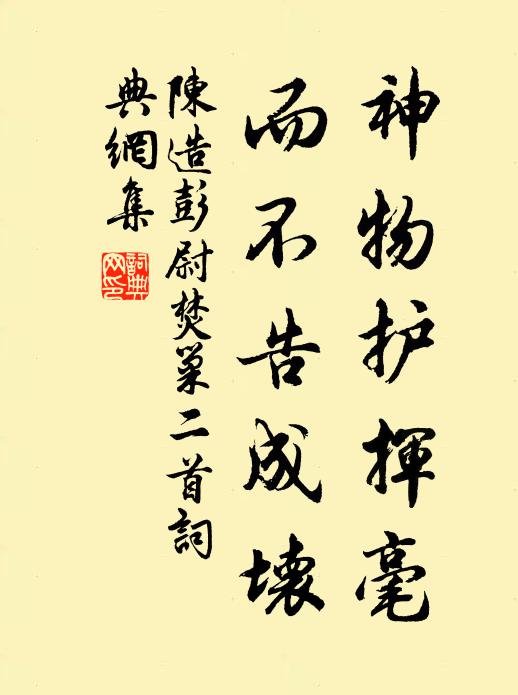 神物护揮毫
而不告成壊
陳造彭尉焚巢二首詞
典網集
詞典网印